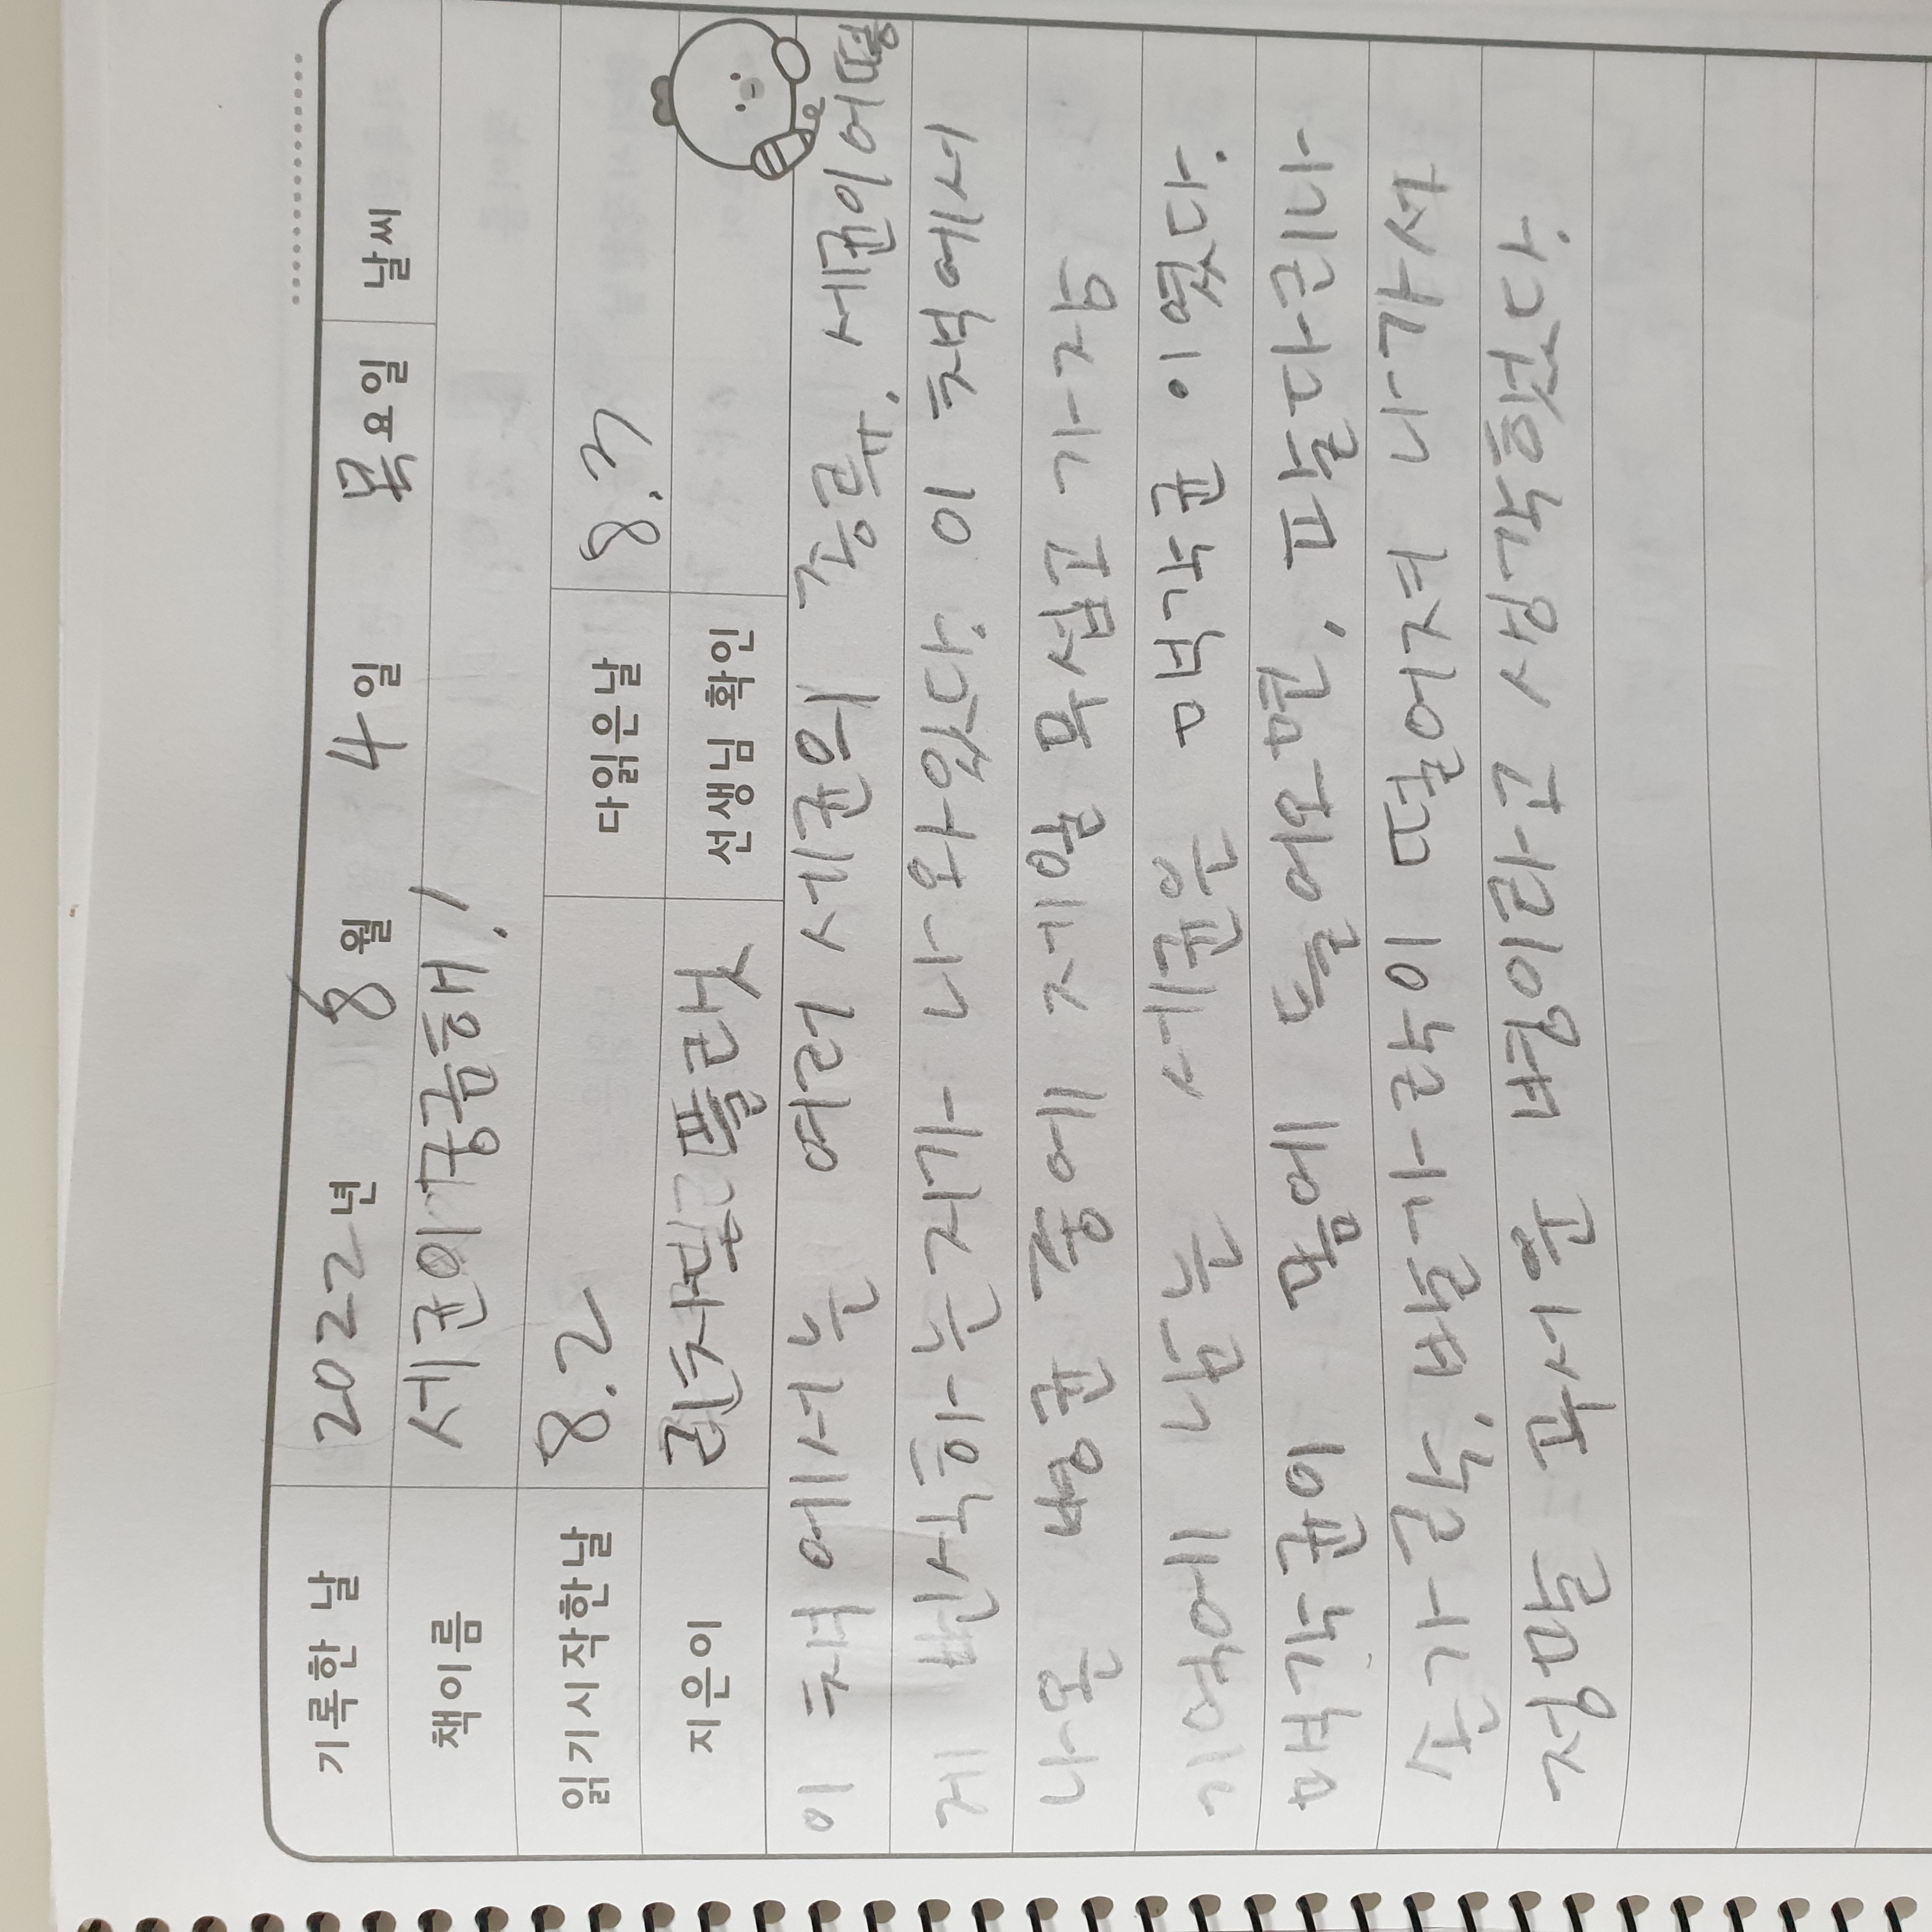 기록한 날 2022년 8월 4일 목요일 날씨
책이름 세균이 궁금해!
읽기시작한날 8.2 다읽은날 8.3
지은이 리차드 플랫 선생님 확인
이 책에서는 여러 세균의 종류, 세균이 어떻
게 번식하는지가 나와있다. 이 책에서
나온 병균 중에 제일 무섭고 가장
기억에 남는 세균은 맥각균 이였다.
맥각균이 몸에 들어오면, 팔다리나
손가락, 발가락이 떨어져 나가서
정말 무서운 병이라고 생각했다.